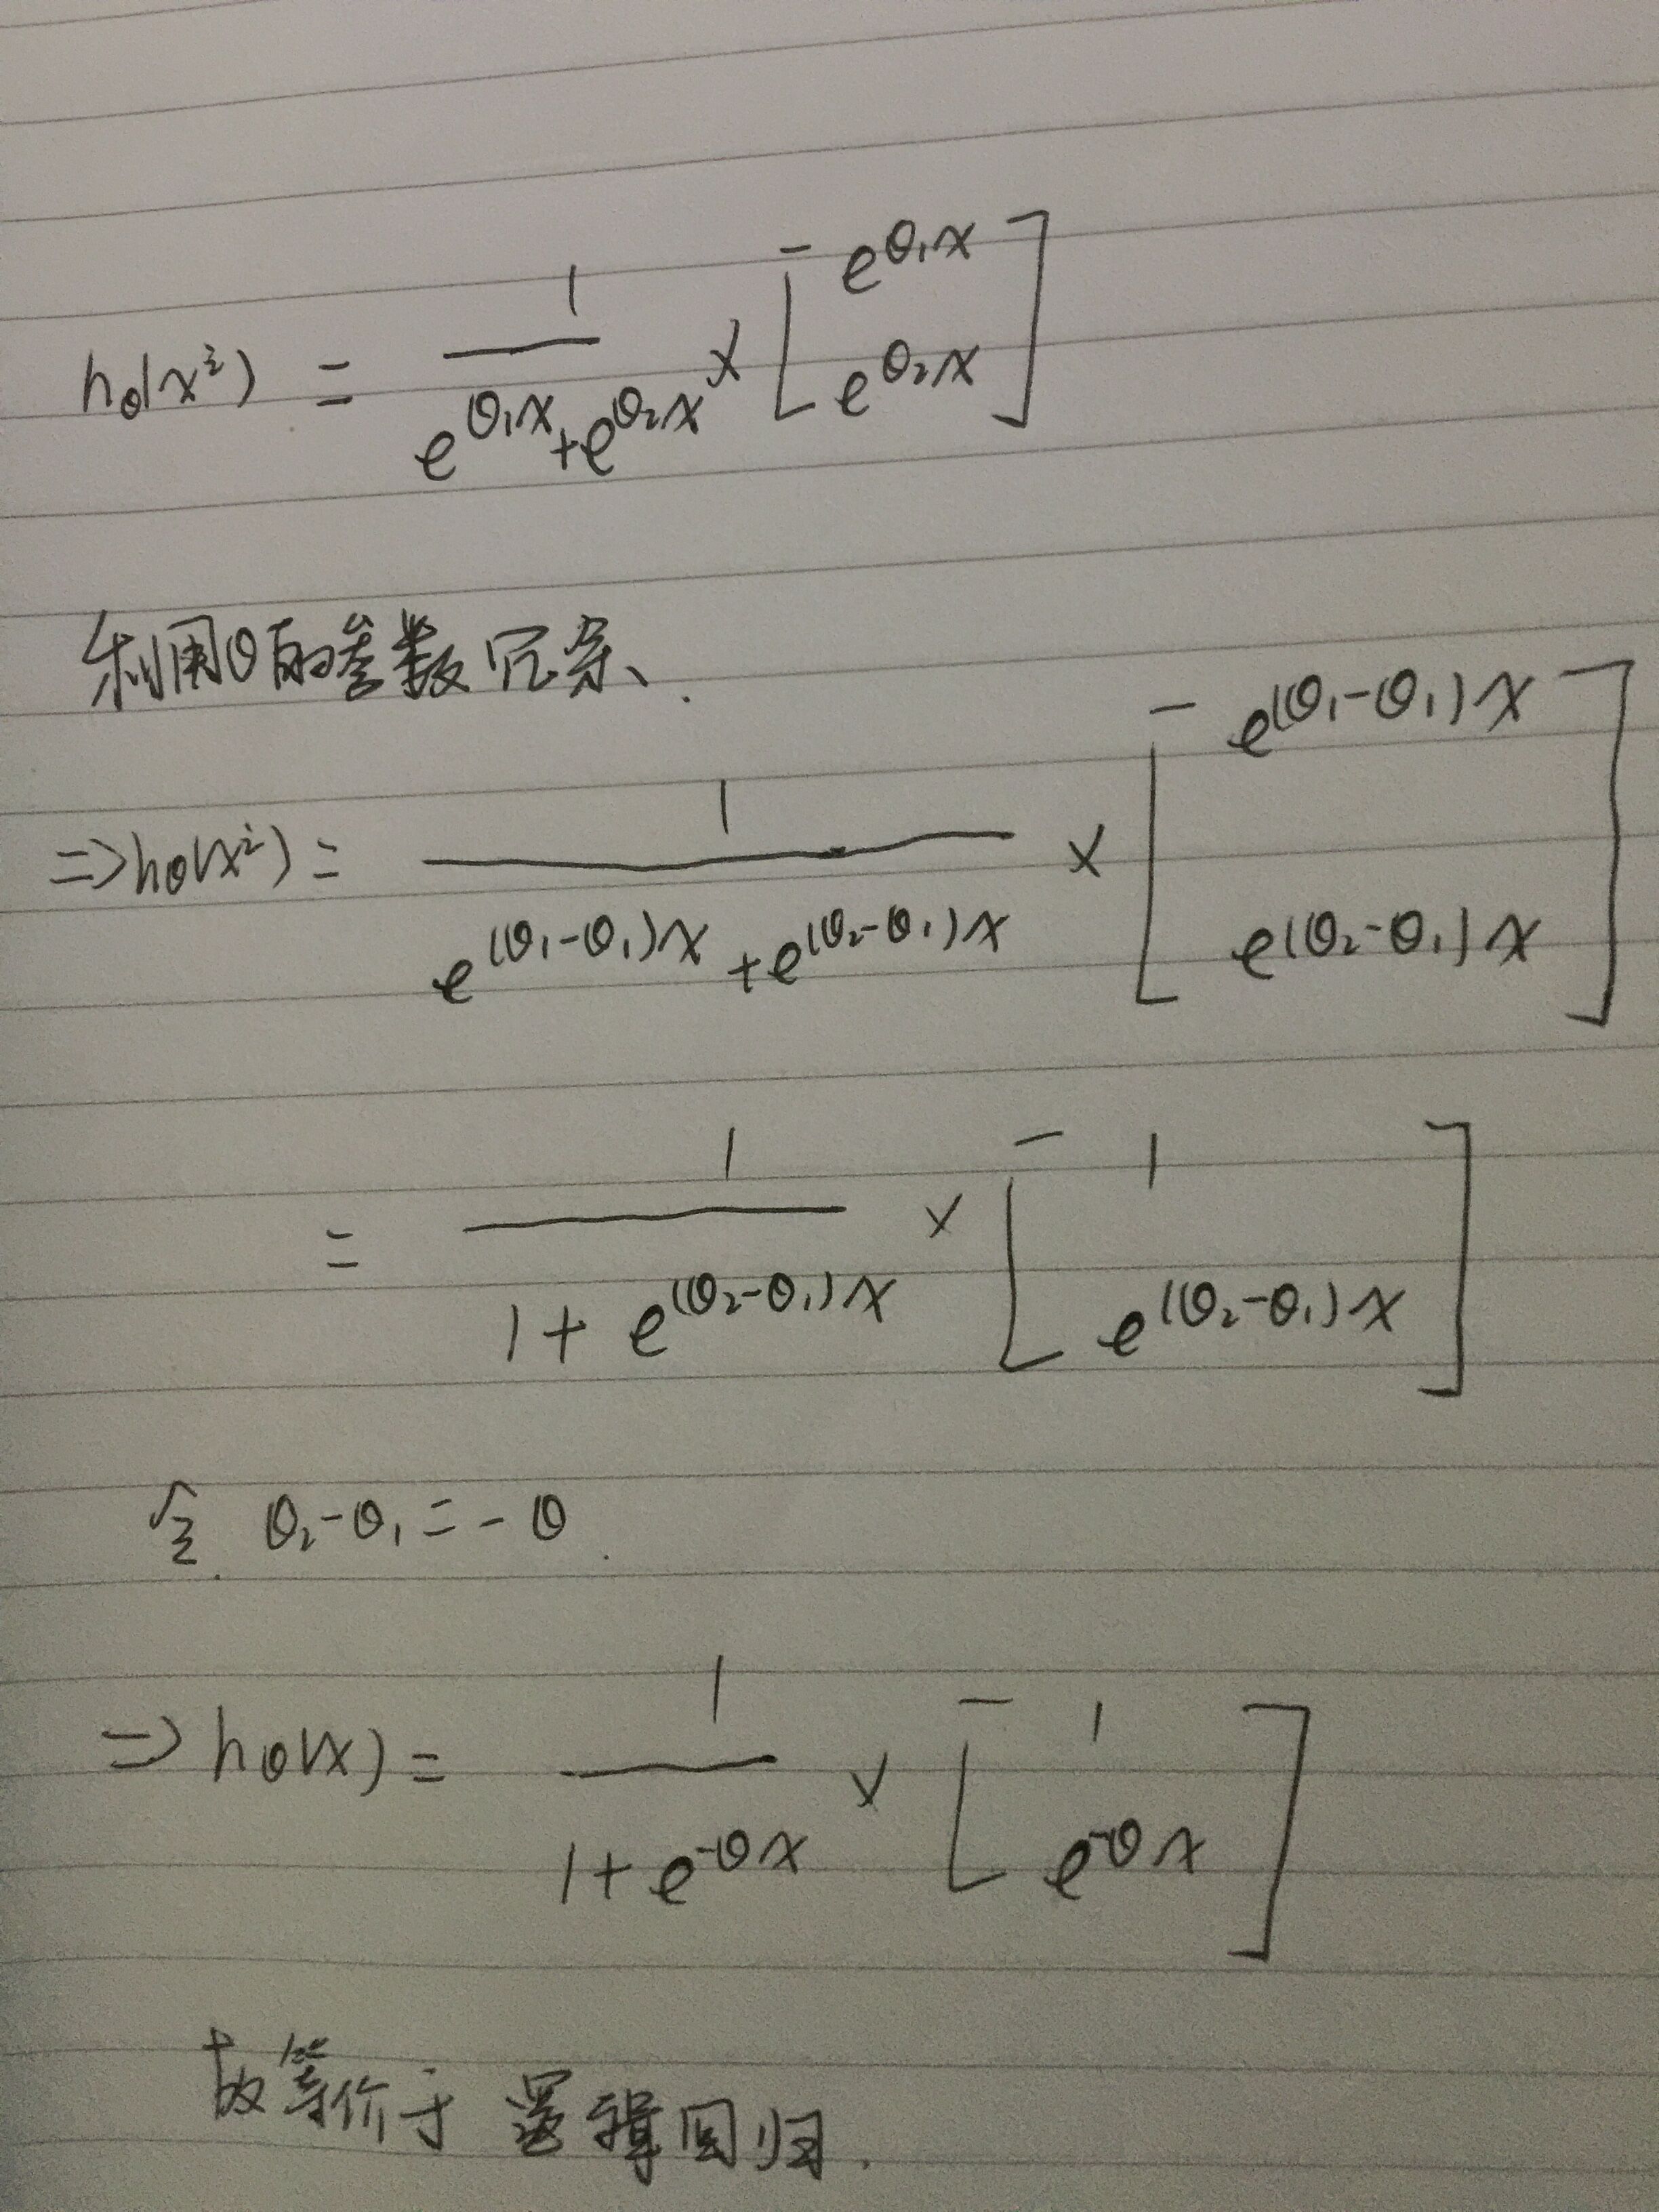 hθ(xⁱ) = 1 / (e^{θ₁x} + e^{θ₂x}) × [ e^{θ₁x} ; e^{θ₂x} ]
利用θ的参数冗余、.
=> hθ(xⁱ) = 1 / (e^{(θ₁-θ₁)x} + e^{(θ₂-θ₁)x}) × [ e^{(θ₁-θ₁)x} ; e^{(θ₂-θ₁)x} ]
= 1 / (1 + e^{(θ₂-θ₁)x}) × [ 1 ; e^{(θ₂-θ₁)x} ]
令. θ₂-θ₁ = -θ.
=> hθ(x) = 1 / (1 + e^{-θx}) × [ 1 ; e^{-θx} ]
故等价于 逻辑回归.